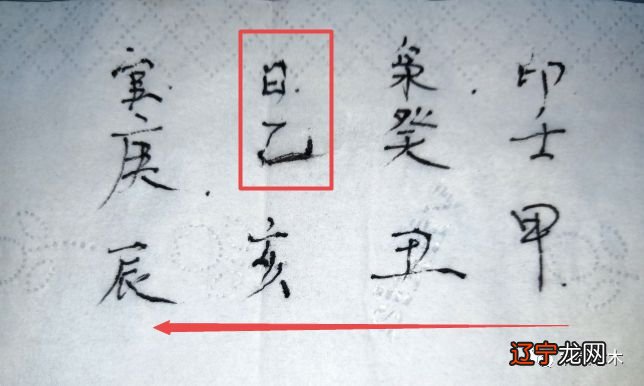 印壬申
枭癸丑
日乙亥
官庚辰
辽宁龙网
木